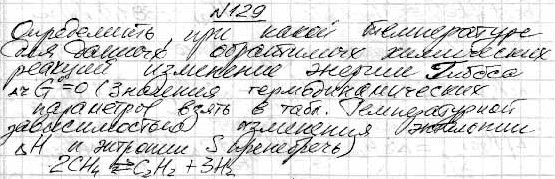 №129
Определить, при какой температуре
для данных обратимых химических
реакций изменение энергии Гиббса
ΔrG°=0 (Значения термодинамических
параметров взять в табл. Температурной
зависимостью изменения энтальпии
ΔH и энтропии S пренебречь)
2CH₄ ⇄ C₂H₂ + 3H₂